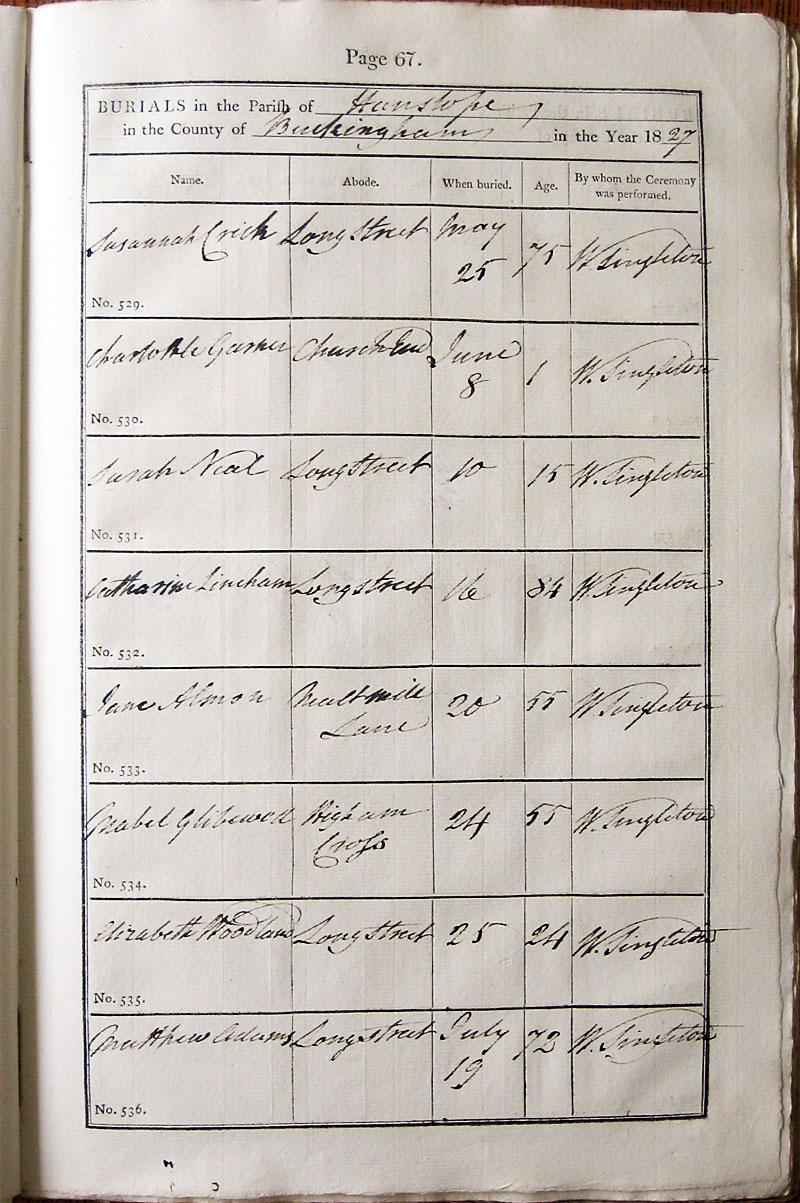 Page 67.
BURIALS in the Parish of Hanslope
in the County of Buckingham in the Year 1827
Name. Abode. When buried. Age. By whom the Ceremony was performed.
Susannah Crick Long Street May 25 75 W. Singleton
No. 529.
Charlotte Garner Church End June 8 1 W. Singleton
No. 530.
Sarah Neal Long Street 10 15 W. Singleton
No. 531.
Catharine Lineham Long Street 16 84 W. Singleton
No. 532.
Jane Almon Malt mill Lane 20 55 W. Singleton
No. 533.
Mabel Higham Cross 24 55 W. Singleton
No. 534.
Elizabeth Woodland Long Street 25 24 W. Singleton
No. 535.
Matthew Adams Long Street July 19 72 W. Singleton
No. 536.